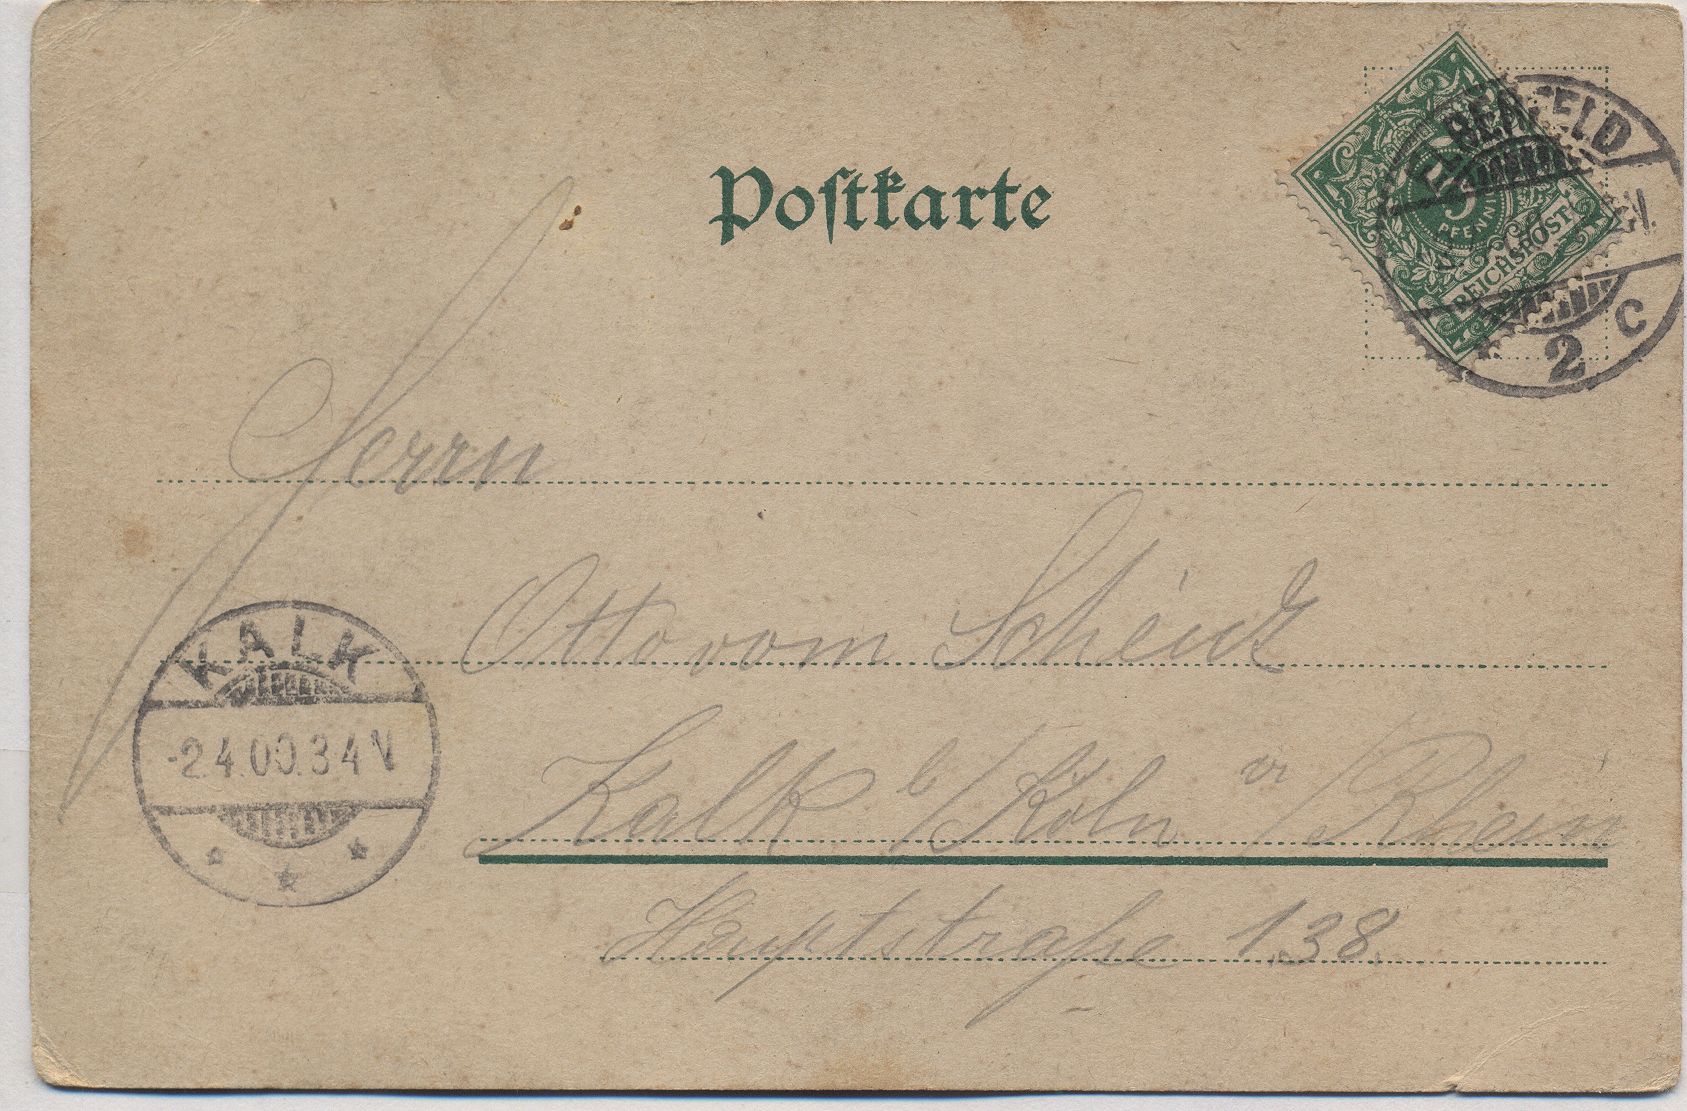 Postkarte
5
PFENNIG
REICHSPOST
2 c
Herrn
Otto vom Scheid
Kalk b/Köln a/Rhein
Hauptstraße 138.
KALK
-2.4.00.3-4 V